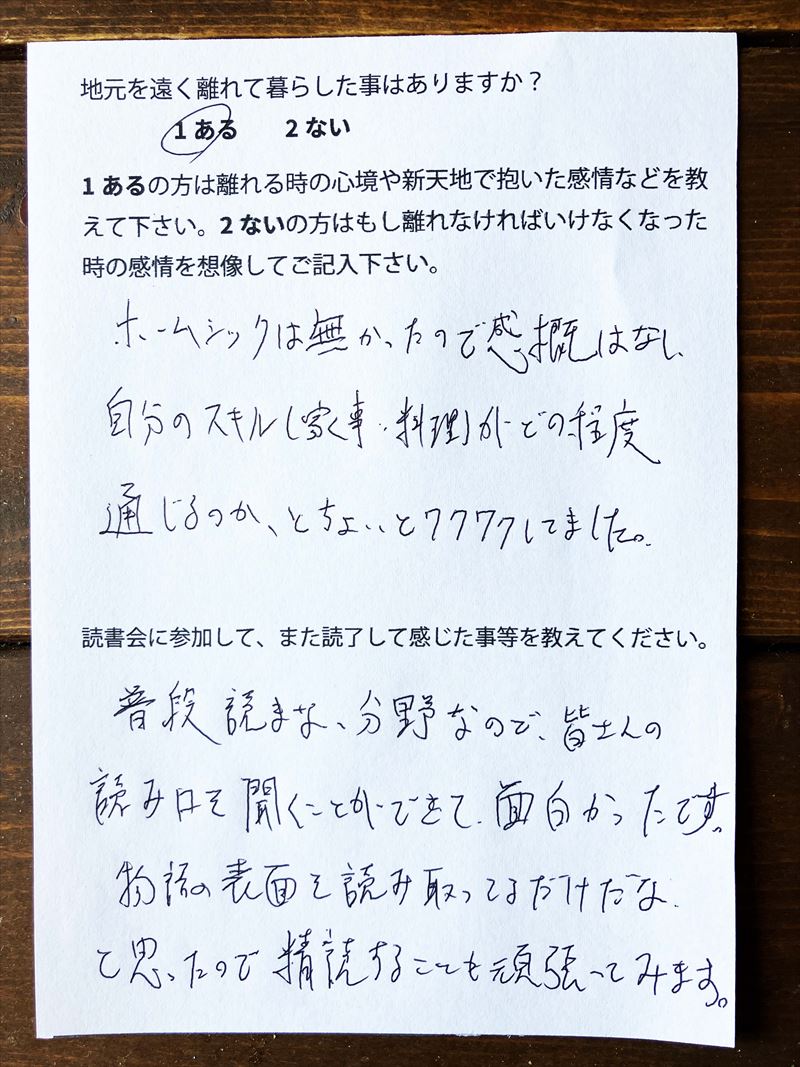 地元を遠く離れて暮らした事はありますか?
1 ある 2 ない
1 あるの方は離れる時の心境や新天地で抱いた感情などを教
えて下さい。2 ないの方はもし離れなければいけなくなった
時の感情を想像してご記入下さい。
ホームシックは無かったので感慨はなし、
自分のスキル(家事・料理)がどの程度
通じるのか、とちょいとワクワクしてました。
読書会に参加して、また読了して感じた事等を教えてください。
普段読まない分野なので、皆さんの
読み口を聞くことができて、面白かったです。
物語の表面を読み取ってるだけだな、
と思ったので精読することも頑張ってみます。